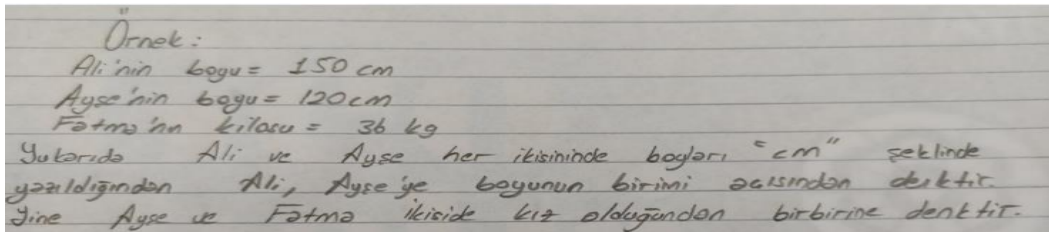 Örnek :
Ali'nin boyu = 150 cm
Ayşe'nin boyu = 120 cm
Fatma'nın kilosu = 36 kg
Yukarıda Ali ve Ayşe her ikisininde boyları "cm" şeklinde
yazıldığından Ali, Ayşe'ye boyunun birimi açısından denktir.
Yine Ayşe ve Fatma ikiside kız olduğundan birbirine denktir.